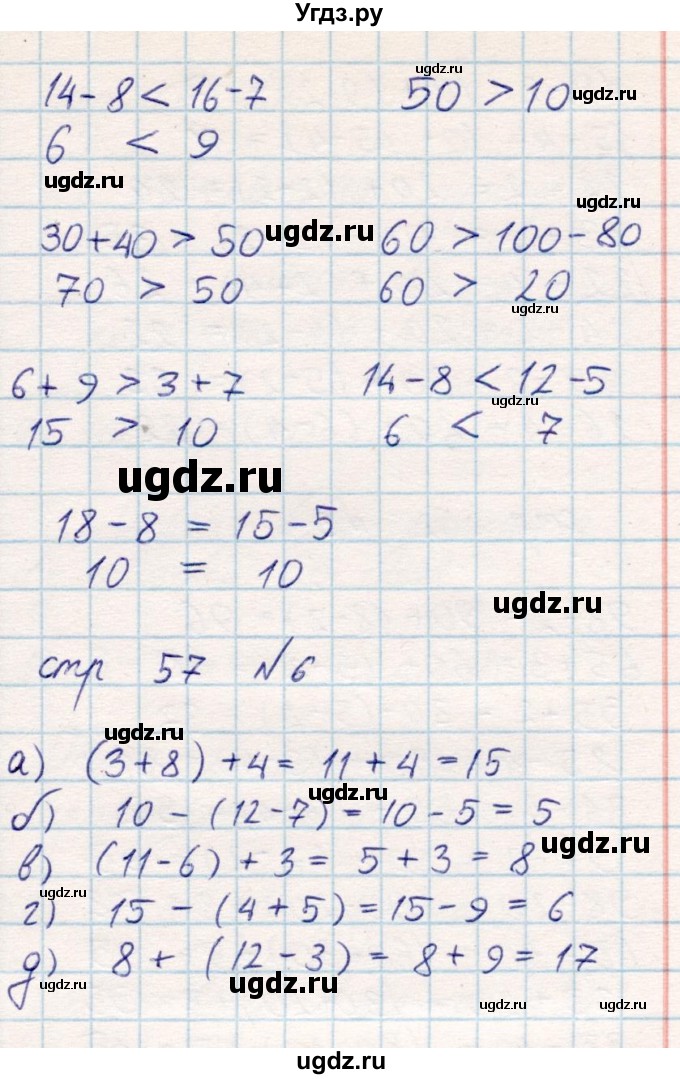 Угдз.ру
14-8 < 16-7
ugdz.ru
50 > 10 ugdz.ru
6 < 9
ugdz.ru
ugdz.ru
30+40 > 50 ugdz.ru 60 > 100-80
70 > 50 60 > 20
ugdz.ru
6+9 > 3+7 14-8 < 12-5
ugdz.ru
15 > 10 6 < 7
ugdz.ru
18-8 = 15-5
10 = 10
ugdz.ru
стр 57 №6
ugdz.ru
а) (3+8)+4= 11+4=15
ugdz.ru
б) 10-(12-7)=10-5=5
ugdz.ru
в) (11-6)+3=5+3=8
ugdz.ru
г) 15-(4+5)=15-9=6
д) 8+(12-3)=8+9=17
ugdz.ru ugdz.ru ugdz.ru ugdz.ru
ugdz.ru